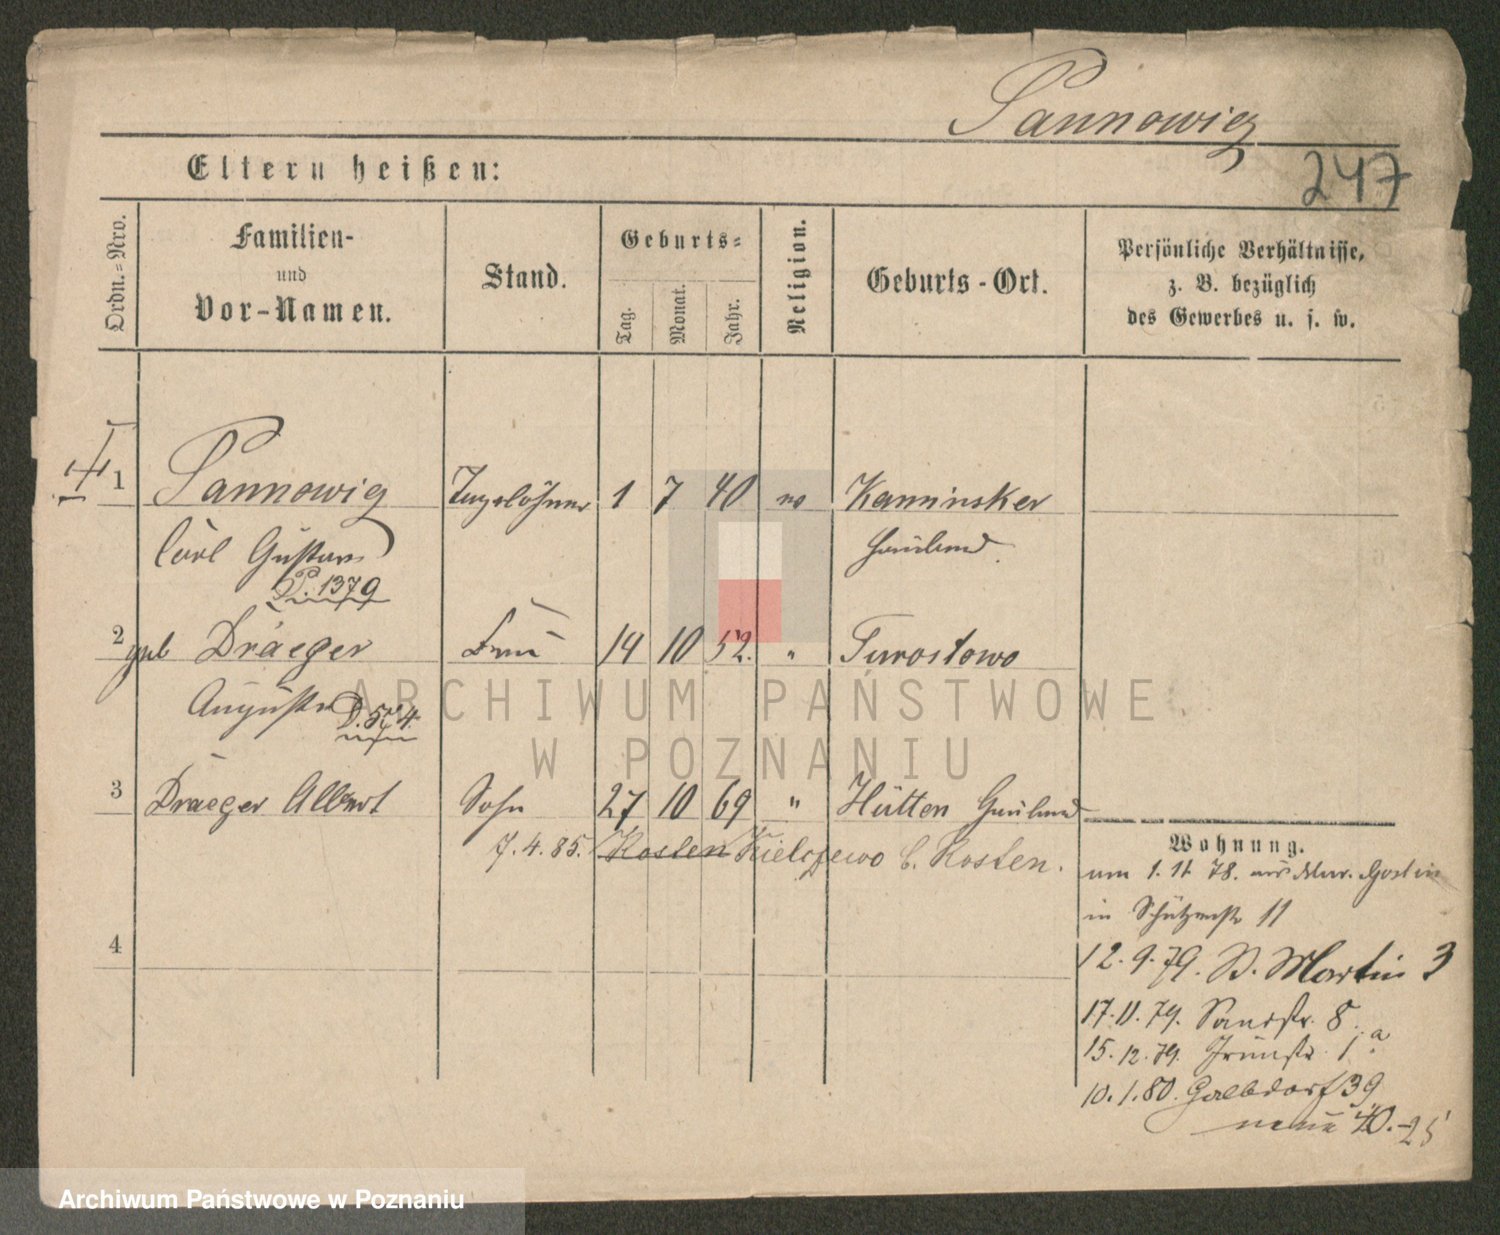 Pannowicz
247
Eltern heißen:
Ordn.=Nro.
Familien-
und
Vor-Namen.
Stand.
Geburts=
Tag.
Monat.
Jahr.
Religion.
Geburts-Ort.
Persönliche Verhältnisse,
z. B. bezüglich
des Gewerbes u. s. w.
1 Tagelöhner 1 7 40 Kaminsker
Carl Gustav Hauland
P. 1379
2 geb Draeger Frau 14 10 52. " Turostowo
Auguste
3 Draeger Albert Sohn 27 10 69 " Hütten Hauland
7.4.85. Kosten Kielczewo b. Kosten.
Wohnung.
1. 11 78. aus Mur. Goslin
in Schützenstr 11
4
12.9.79. St. Martin 3
17.11.79. Sandstr. 8
15.12.79. Grünstr. 1a
10.1.80. 39
neue 40.-25
ARCHIWUM PAŃSTWOWE
W POZNANIU
Archiwum Państwowe w Poznaniu